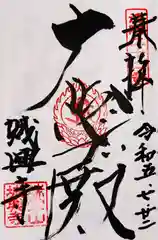 奉拝
令和五 七 廿二
大悲殿
城興寺